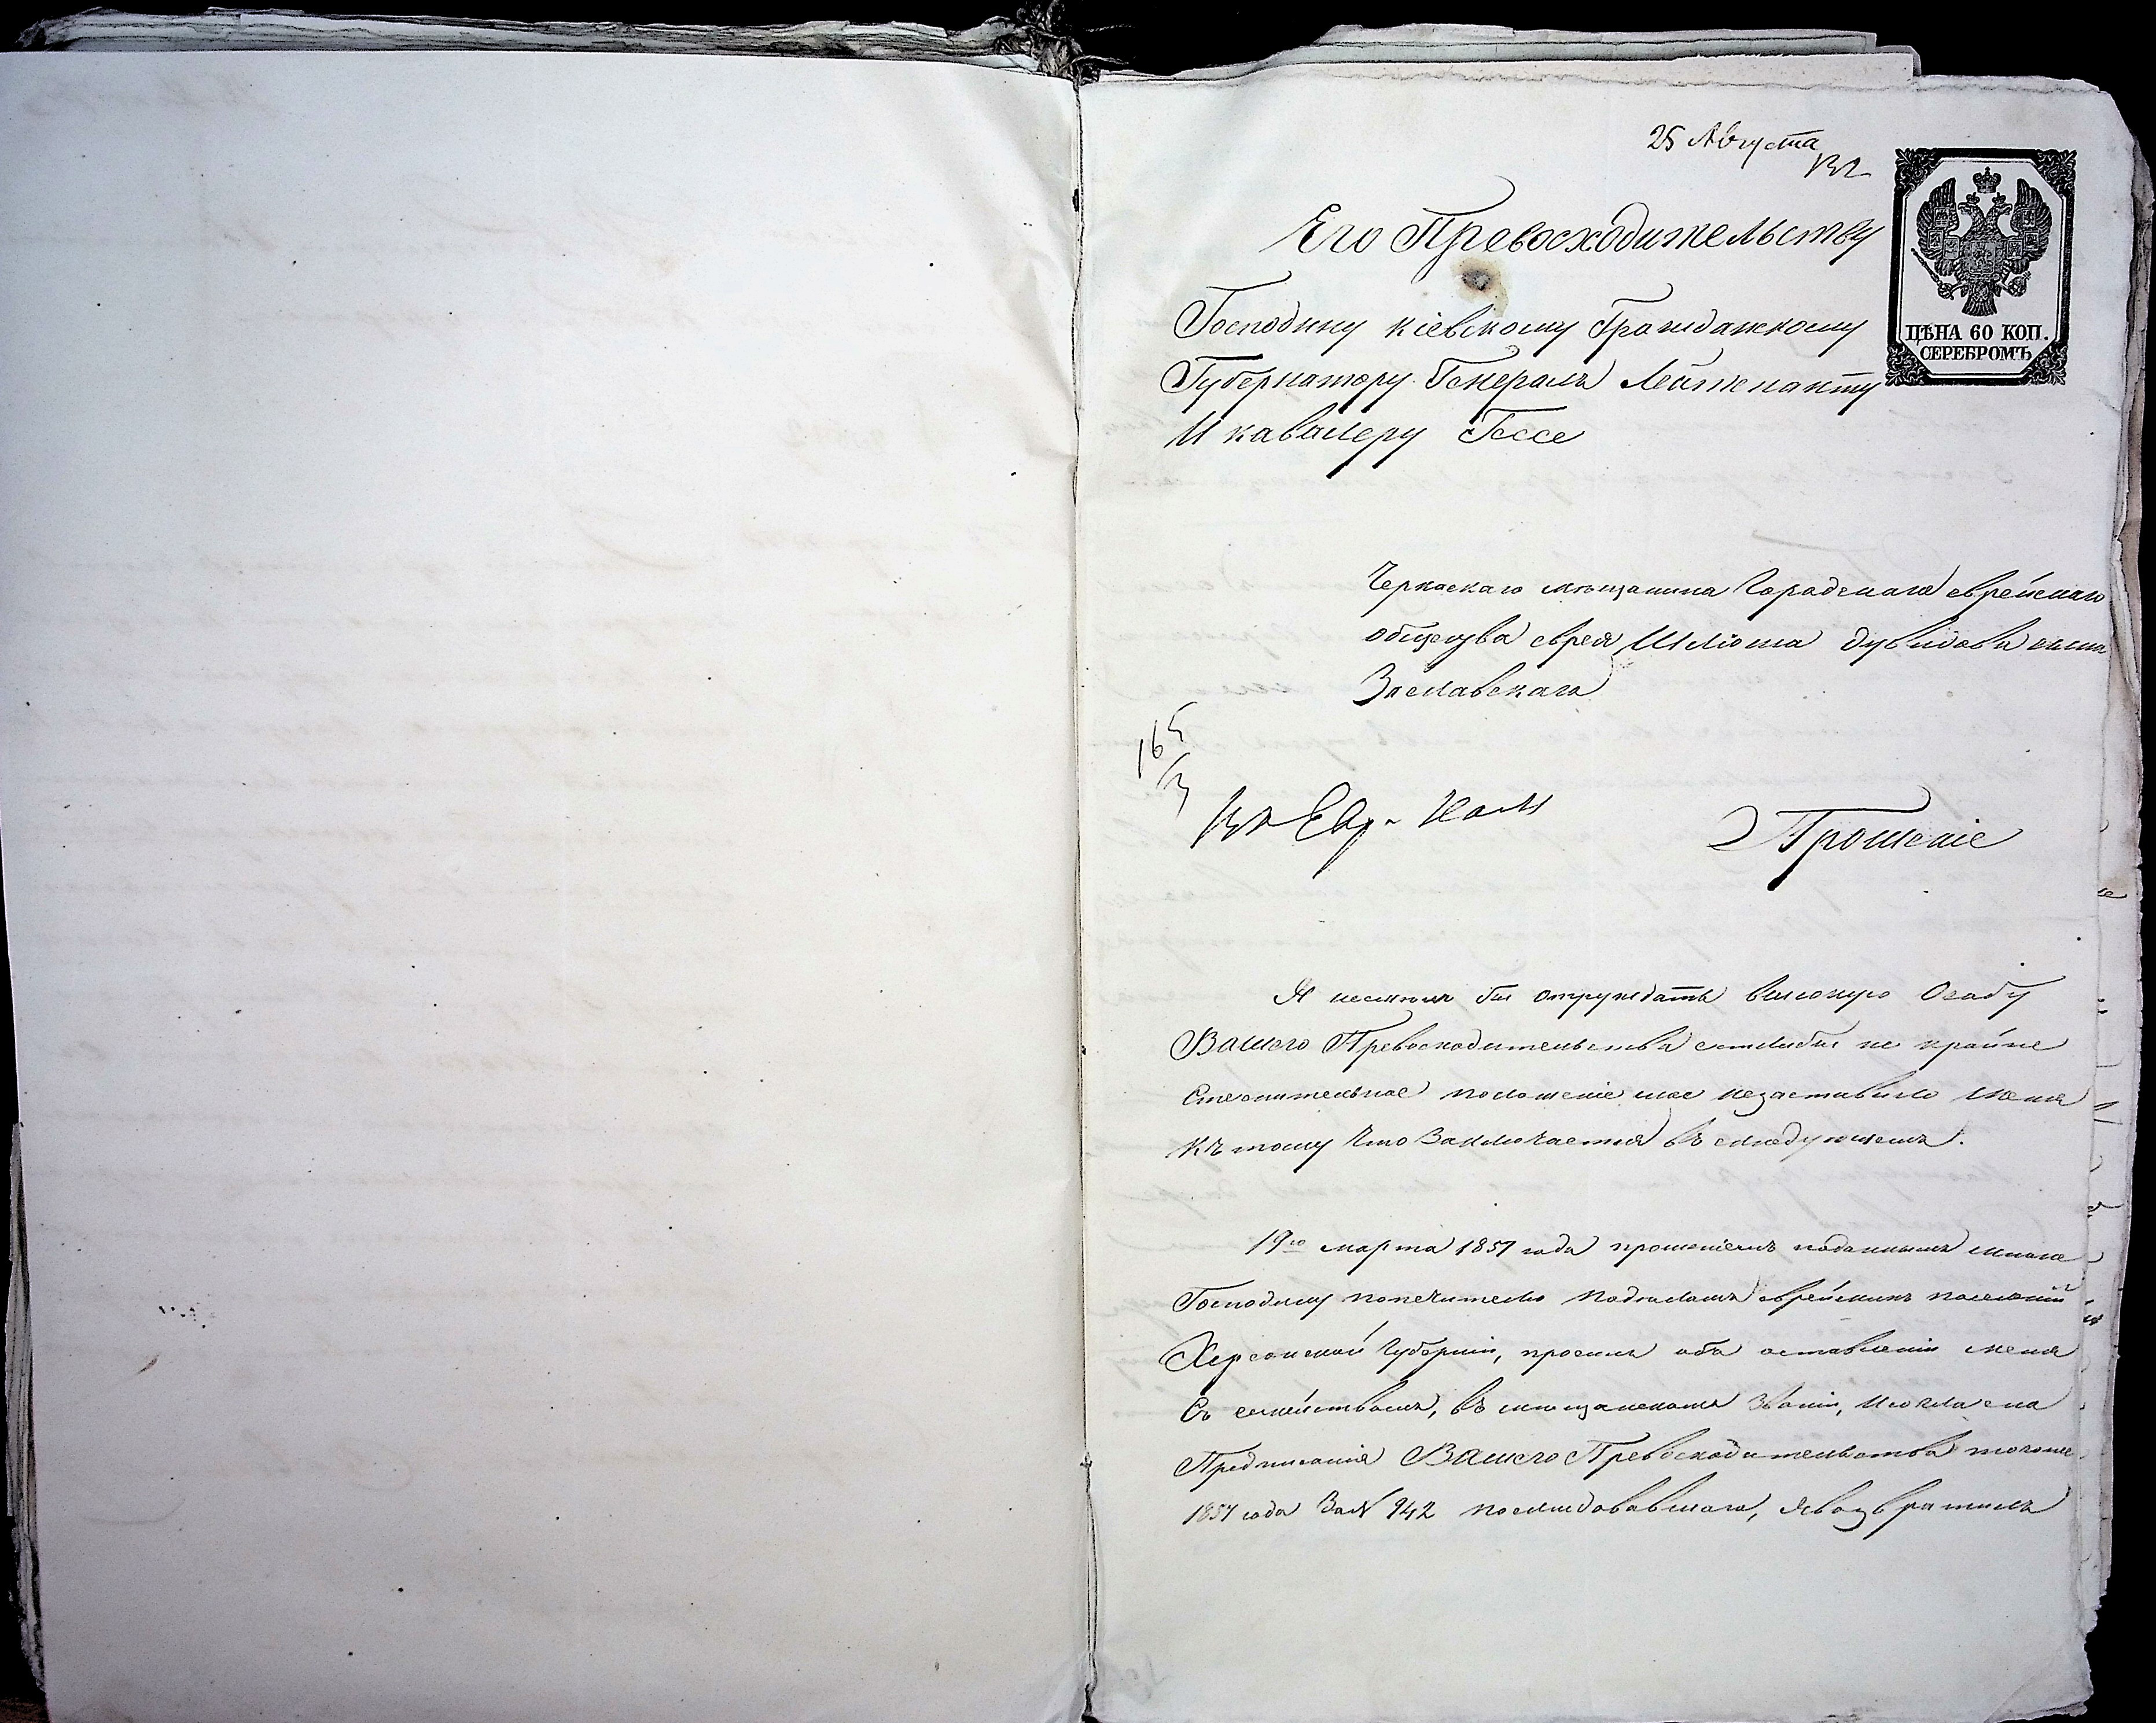 25 Августа
Его Превосходительству
ЦѢНА 60 КОП.
СЕРЕБРОМЪ
Господину кіевскому Гражданскому
Губернатору Генералъ Лейтенанту
И кавалеру Гессе
Черкаскаго мѣщанина Городскаго еврейскаго
общества еврея Шлиома Дувидова сына
Заславскаго
165
Прошеніе
Я несмѣлъ бы отруждать высокую Особу
Вашего Превосходительства еслибы не крайне
Стеснительное положеніе мое незаставило меня
Къ тому Что Заключается въ следующемъ.
19го марта 1857 года прошеніемъ поданнымъ мною
Господину попечителю еврейскихъ поселеній
Херсонской Губерніи, просилъ объ оставленіи меня
Съ семействомъ, въ мѣщанскомъ Званіи,
Предписанія Вашего Превосходительства тогоже
1857 года За № 942 последовавшаго, явозвратилъ